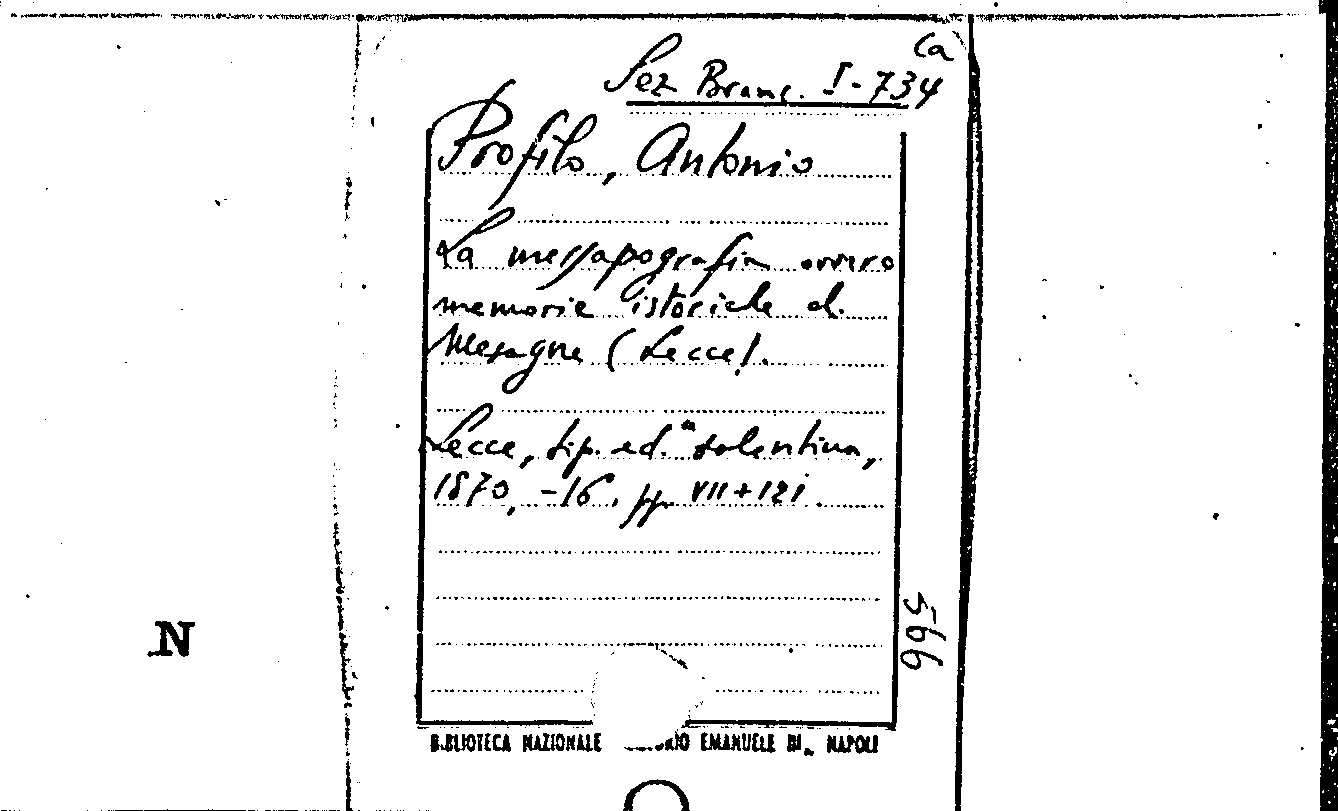 Ca
Sez Branc. I-734
Profilo, Antonio
La messapografia ovvero
memorie istoriche di
Mesagne (Lecce).
Lecce, tip. ed." salentina,
1870, -16. pp. VII+121.
566
N
BIBLIOTECA NAZIONALE EMANUELE III NAPOLI